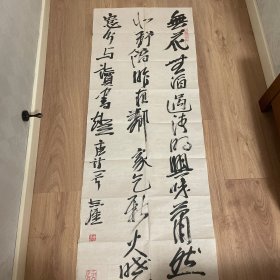 無花無酒過清明興味蕭然
似野僧昨日鄰家乞新火曉
窗分与讀書燈 唐詩一首